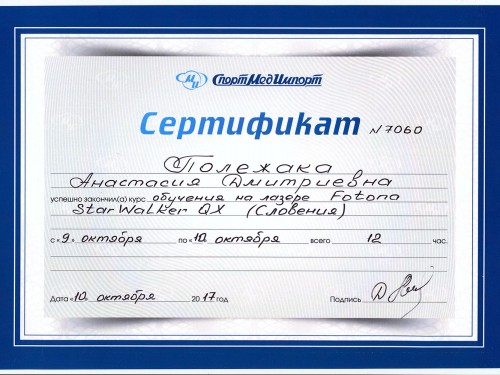 МИ СпортМедИмпорт
Сертификат N 7060
Полежака
Анастасия Дмитриевна
успешно закончил(а) курс обучения на лазере Fotona
StarWalker QX (Словения)
с «9» октября по «10» октября всего 12 час.
Дата «10» октября 2017 год Подпись